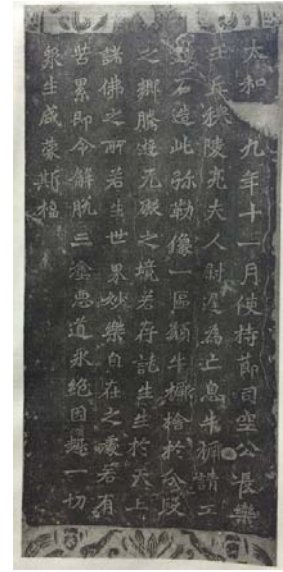 太和九年十一月使持節司空公長樂
王丘穆陵亮夫人尉遲為亡息牛橛請工
石造此弥勒像一區願牛橛捨於分段
之鄉騰遊无礙之境若存託生生於天上
諸佛之所若生世界妙樂自在之處若有
苦累即令解脫三塗惡道永絕因趣一切
衆生咸蒙斯福